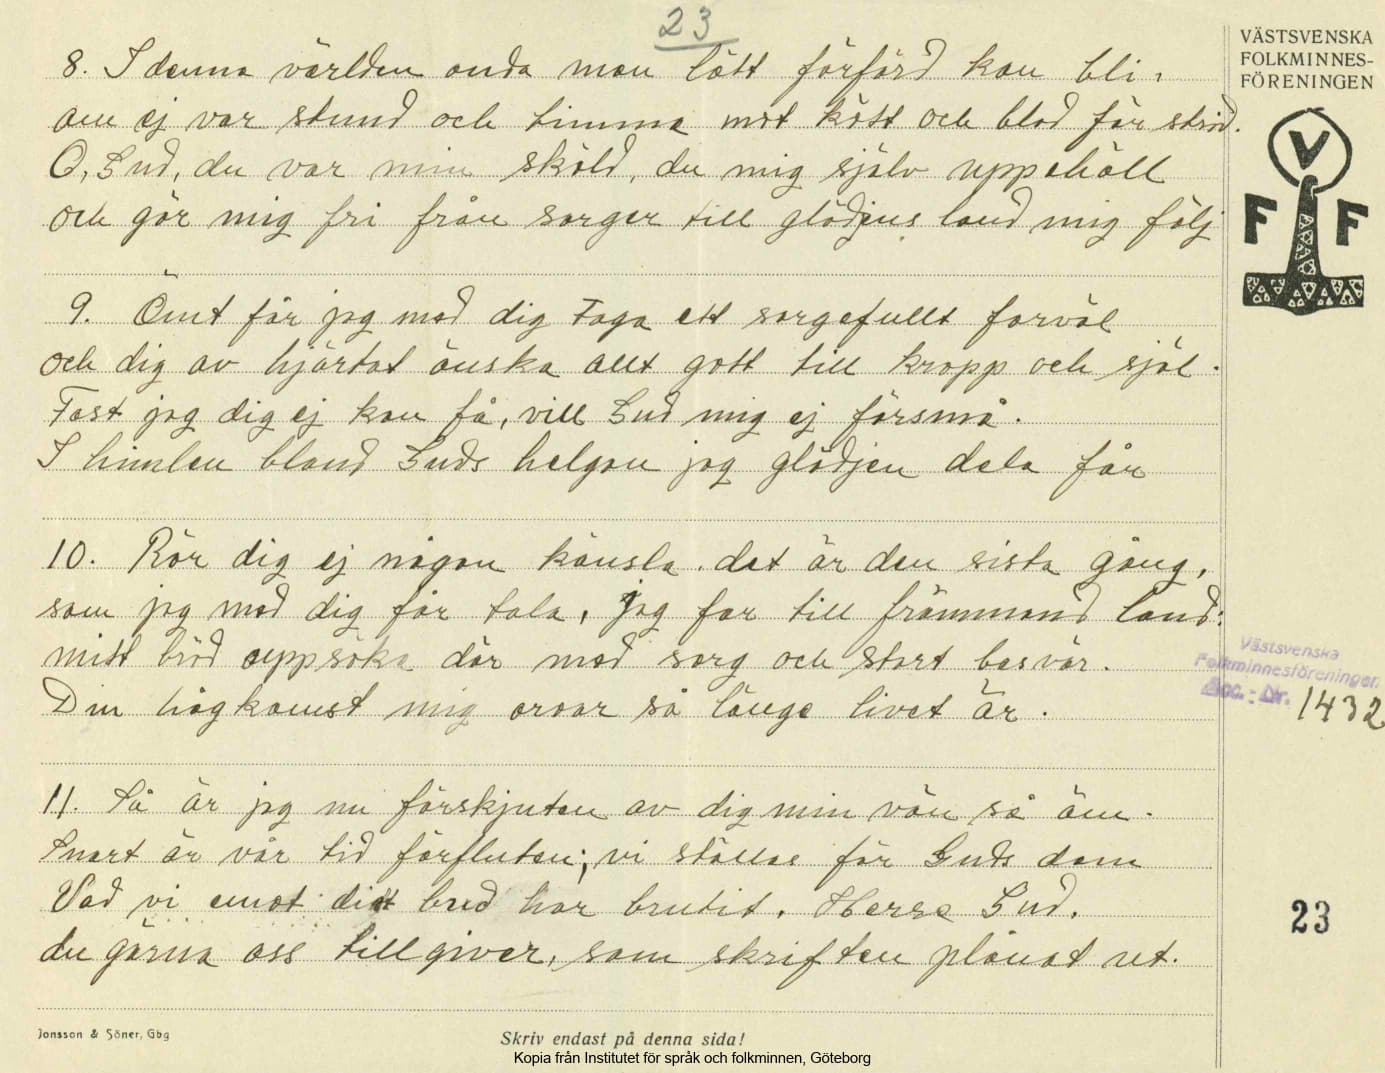 23
VÄSTSVENSKA
FOLKMINNES-
FÖRENINGEN
V
F F
8. I denna världen onda man lätt förförd kan bli,
om ej var stund och timma mot kött och blod får strid.
O, Gud, du var min sköld, du mig själv uppehåll
och gör mig fri från sorger till glädjens land mig följ
9. Ömt får jag med dig Taga ett sorgefullt farväl
och dig av hjärtat önska allt gott till kropp och själ.
Fast jag dig ej kan få, vill Gud mig ej försmå.
I himlen bland Guds helgon jag glädjen dela får
10. Rör dig ej någon känsla. det är den sista gång,
som jag med dig får tala, jag far till främmand land:
mitt bröd uppsöka där med sorg och stort besvär.
Din hågkomst mig oroar så länge livet är.
Västsvenska
Folkminnesföreningen
Acc.-Nr. 1432
11. Så är jag nu förskjuten av dig min vän så öm.
Snart är vår tid förfluten; vi ställas för Guds dom
Vad vi emot ditt bud har brutit, Herre Gud,
du gärna oss tillgiver, som skriften plånat ut.
23
Jonsson & Söner, Gbg
Skriv endast på denna sida!
Kopia från Institutet för språk och folkminnen, Göteborg